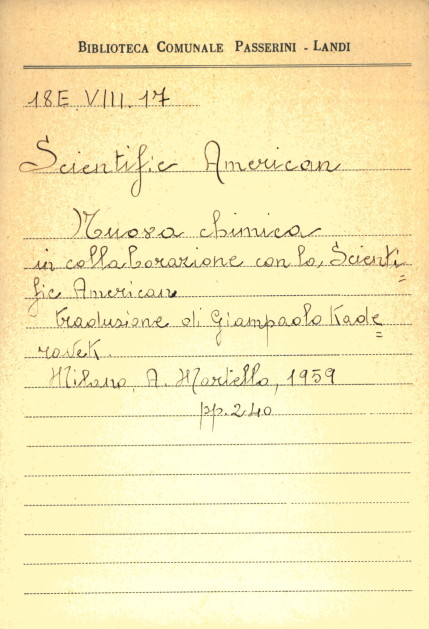 BIBLIOTECA COMUNALE PASSERINI - LANDI
18E VIII. 17
Scientific American
Nuova chimica
in collaborazione con lo, Scienti=
fic American
traduzione di Giampaolo Kade=
ravek.
Milano, A. Martello, 1959
pp. 240